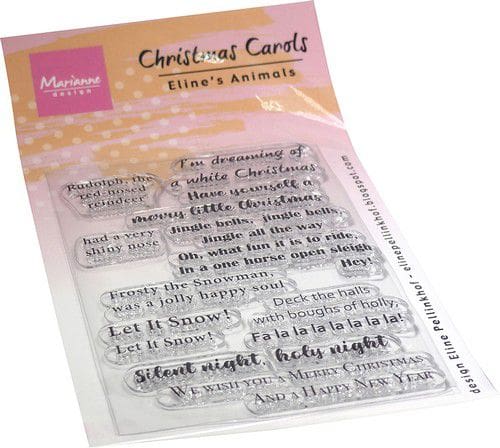 Marianne
design
Christmas Carols
Eline's Animals
Rudolph, the
red-nosed
reindeer
had a very
shiny nose
I'm dreaming of
a white Christmas
Have yourself a
merry little Christmas
Jingle bells, jingle bells,
Jingle all the way
Oh, what fun it is to ride,
In a one horse open sleigh
Hey!
Frosty the Snowman,
was a jolly happy soul
Let It Snow!
Let It Snow!
Deck the halls
with boughs of holly,
Fa la la la la la la la!
Silent night, holy night
We wish you a Merry Christmas
And a Happy New Year
design Eline Pellinkhof - elinepellinkhof.blogspot.com